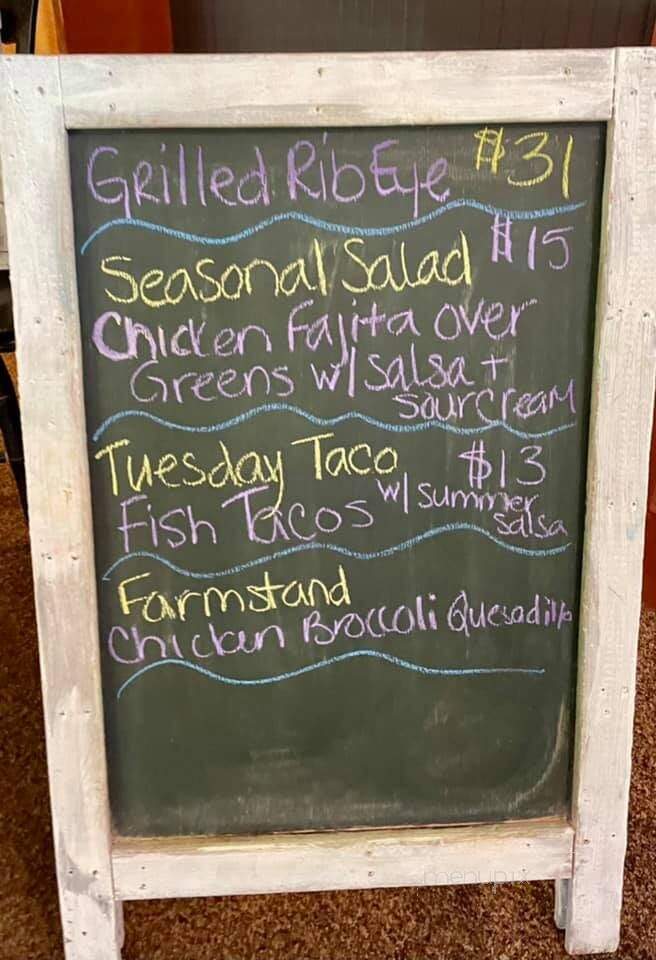 Grilled RibEye $31
Seasonal Salad $15
Chicken Fajita over
Greens w/ salsa +
sour cream
Tuesday Taco $13
Fish Tacos w/ summer
salsa
Farmstand
Chicken Broccoli Quesadilla
menupix